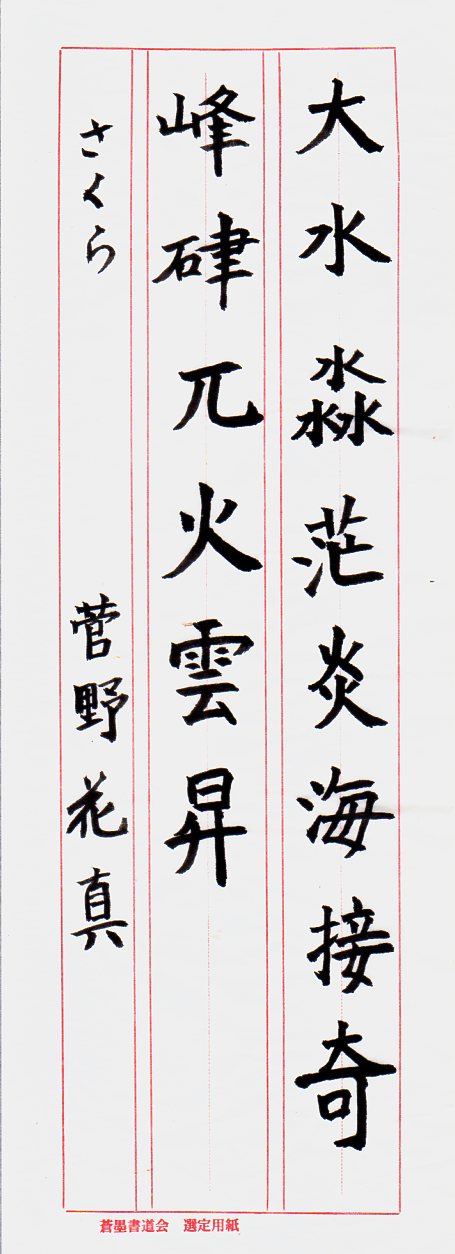 大水淼茫炎海接奇
峰硉兀火雲昇
さくら 菅野花真
蒼墨書道会 選定用紙